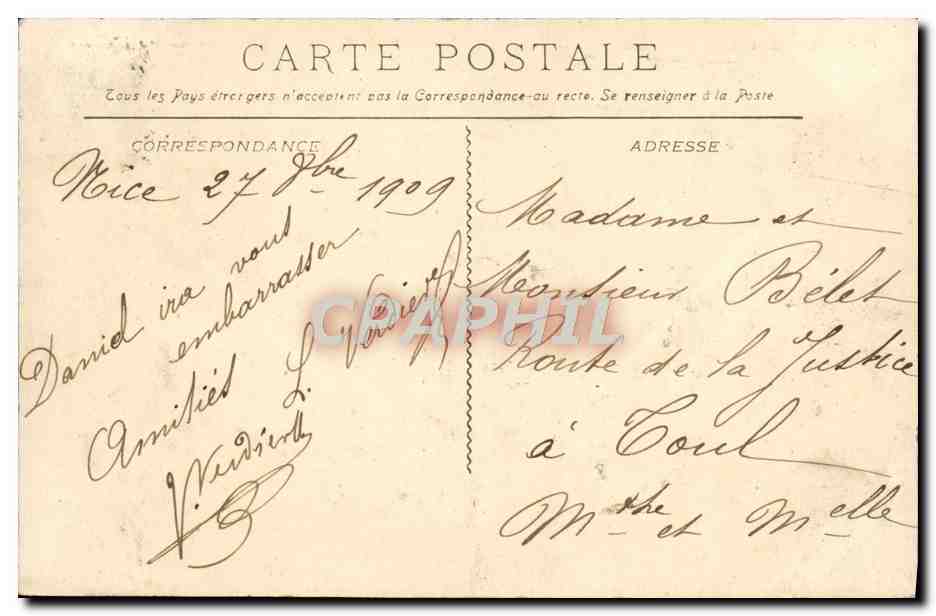 CARTE POSTALE
Tous les Pays étrangers n'acceptent pas la Correspondance au recto. Se renseigner à la Poste
CORRESPONDANCE
Nice 27 8bre 1909
David ira vous
embarrasser
Amitiés L. Verdier
J. Verdier
ADRESSE
Madame et
Monsieur Bélet
Route de la Justice
à Toul
Mthe et Melle
CPAPHIL